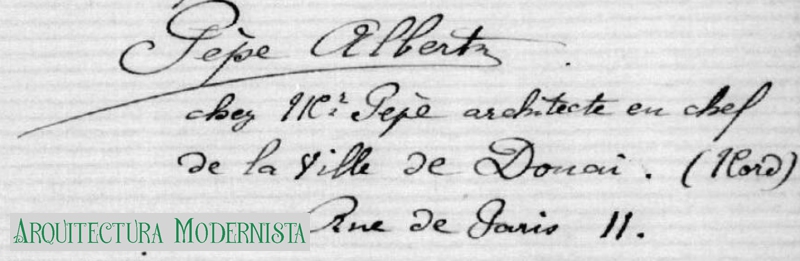 Pèpe Albert
chez Mr. Pèpe architecte en chef
de la Ville de Douai. (Nord)
Rue de Paris 11.
ARQUITECTURA MODERNISTA